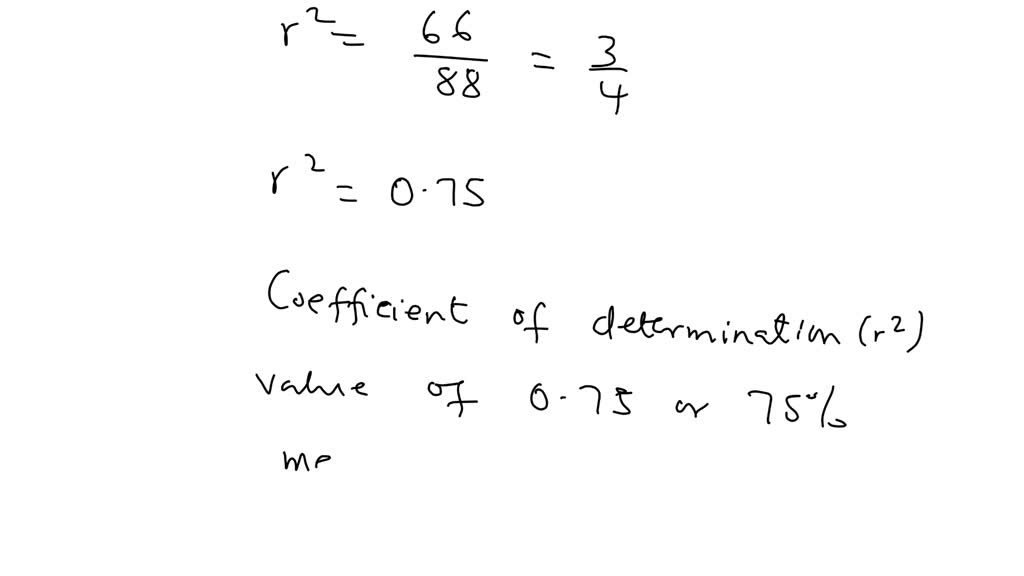 r² = 66/88 = 3/4
r² = 0.75
Coefficient of determination (r²)
value of 0.75 or 75%
me